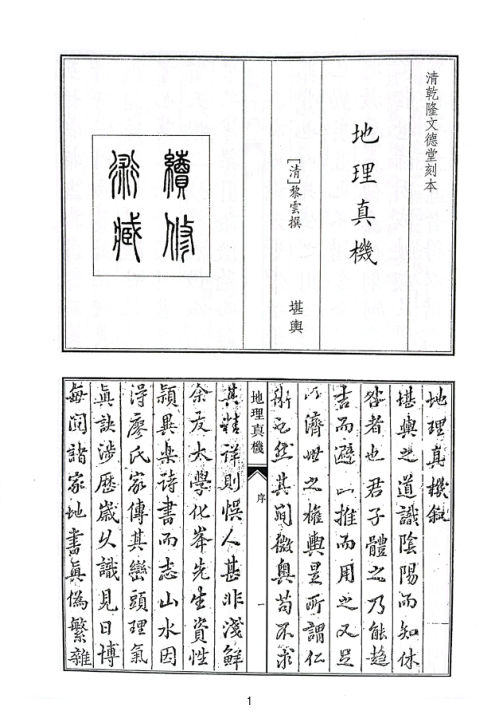 清乾隆文德堂刻本
地理真機
[清]黎雲撰
堪輿
續修
術藏
地理真機叙
堪輿之道識陰陽而知休
咎者也君子體之乃能趨
吉而避凶推而用之又足
以濟世之權輿是所謂仁
術已然其間微奧苟不求
地理真機
序
一
其精詳則悮人甚非淺鮮
余友太學化峯先生資性
頴異詩書而志山水因
淂廖氏家傳其巒頭理氣
眞訣涉歷歲久識見日博
每閱諸家地書眞偽繁雜
1